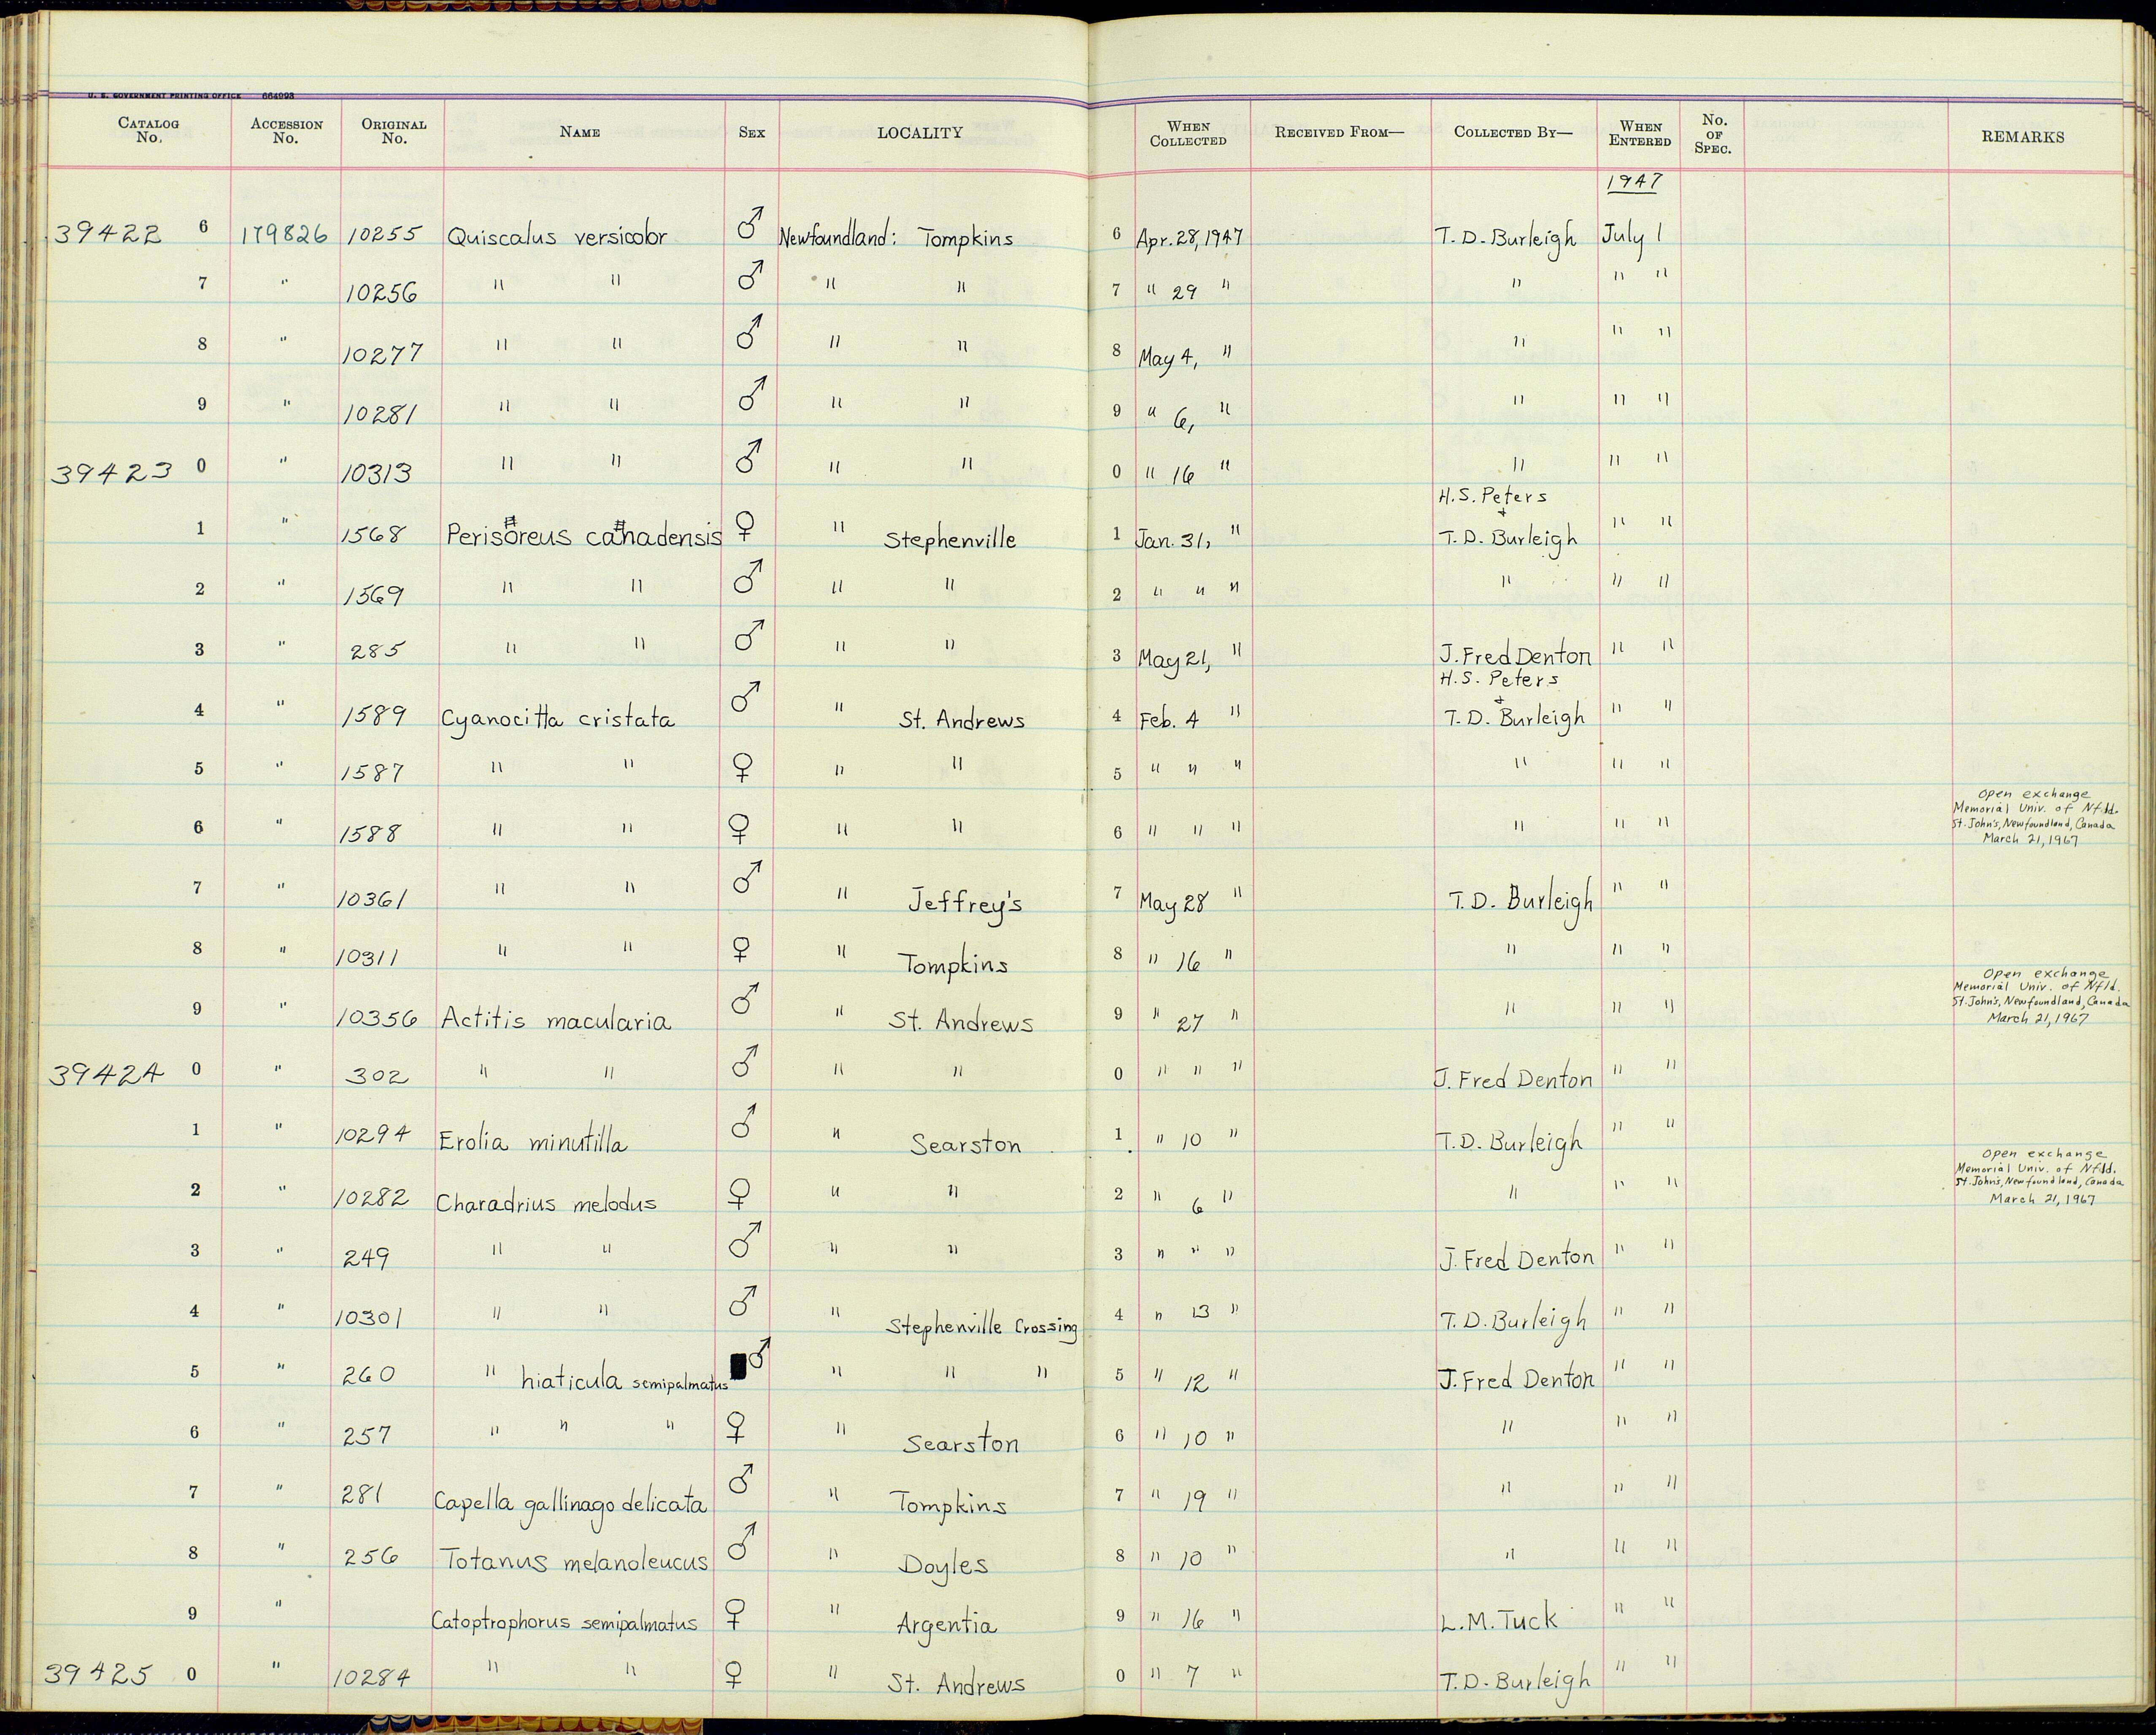 U. S. GOVERNMENT PRINTING OFFICE 664998
CATALOG No. ACCESSION No. ORIGINAL No. NAME SEX LOCALITY WHEN COLLECTED RECEIVED FROM— COLLECTED BY— WHEN ENTERED No. OF SPEC. REMARKS
1947
39422 6 179826 10255 Quiscalus versicolor ♂ Newfoundland: Tompkins 6 Apr. 28, 1947 T. D. Burleigh July 1
7 " 10256 " " ♂ " " 7 " 29 " " " "
8 " 10277 " " ♂ " " 8 May 4, " " " "
9 " 10281 " " ♂ " " 9 " 6, " " " "
39423 0 " 10313 " " ♂ " " 0 " 16 " " " "
H. S. Peters
+
1 " 1568 Perisoreus canadensis ♀ " Stephenville 1 Jan. 31, " T. D. Burleigh " "
2 " 1569 " " ♂ " " 2 " " " " " "
3 " 285 " " ♂ " " 3 May 21, " J. Fred Denton " "
H. S. Peters
+
4 " 1589 Cyanocitta cristata ♂ " St. Andrews 4 Feb. 4 " T. D. Burleigh " "
5 " 1587 " " ♀ " " 5 " " " " " "
Open exchange
Memorial Univ. of Nfld.
St. John's, Newfoundland, Canada
6 " 1588 " " ♀ " " 6 " " " " " " March 21, 1967
7 " 10361 " " ♂ " Jeffrey's 7 May 28 " T. D. Burleigh " "
8 " 10311 " " ♀ " Tompkins 8 " 16 " " " "
Open exchange
Memorial Univ. of Nfld.
St. John's, Newfoundland, Canada
9 " 10356 Actitis macularia ♂ " St. Andrews 9 " 27 " " " " March 21, 1967
39424 0 " 302 " " ♂ " " 0 " " " J. Fred Denton " "
1 " 10294 Erolia minutilla ♂ " Searston 1 " 10 " T. D. Burleigh " "
Open exchange
Memorial Univ. of Nfld.
St. John's, Newfoundland, Canada
2 " 10282 Charadrius melodus ♀ " " 2 " 6 " " " " March 21, 1967
3 " 249 " " ♂ " " 3 " " " J. Fred Denton " "
4 " 10301 " " ♂ " Stephenville Crossing 4 " 13 " T. D. Burleigh " "
5 " 260 " hiaticula semipalmatus ♂ " " " 5 " 12 " J. Fred Denton " "
6 " 257 " " " ♀ " Searston 6 " 10 " " " "
7 " 281 Capella gallinago delicata ♂ " Tompkins 7 " 19 " " " "
8 " 256 Totanus melanoleucus ♂ " Doyles 8 " 10 " " " "
9 " Catoptrophorus semipalmatus ♀ " Argentia 9 " 16 " L. M. Tuck " "
39425 0 " 10284 " " ♀ " St. Andrews 0 " 7 " T. D. Burleigh " "